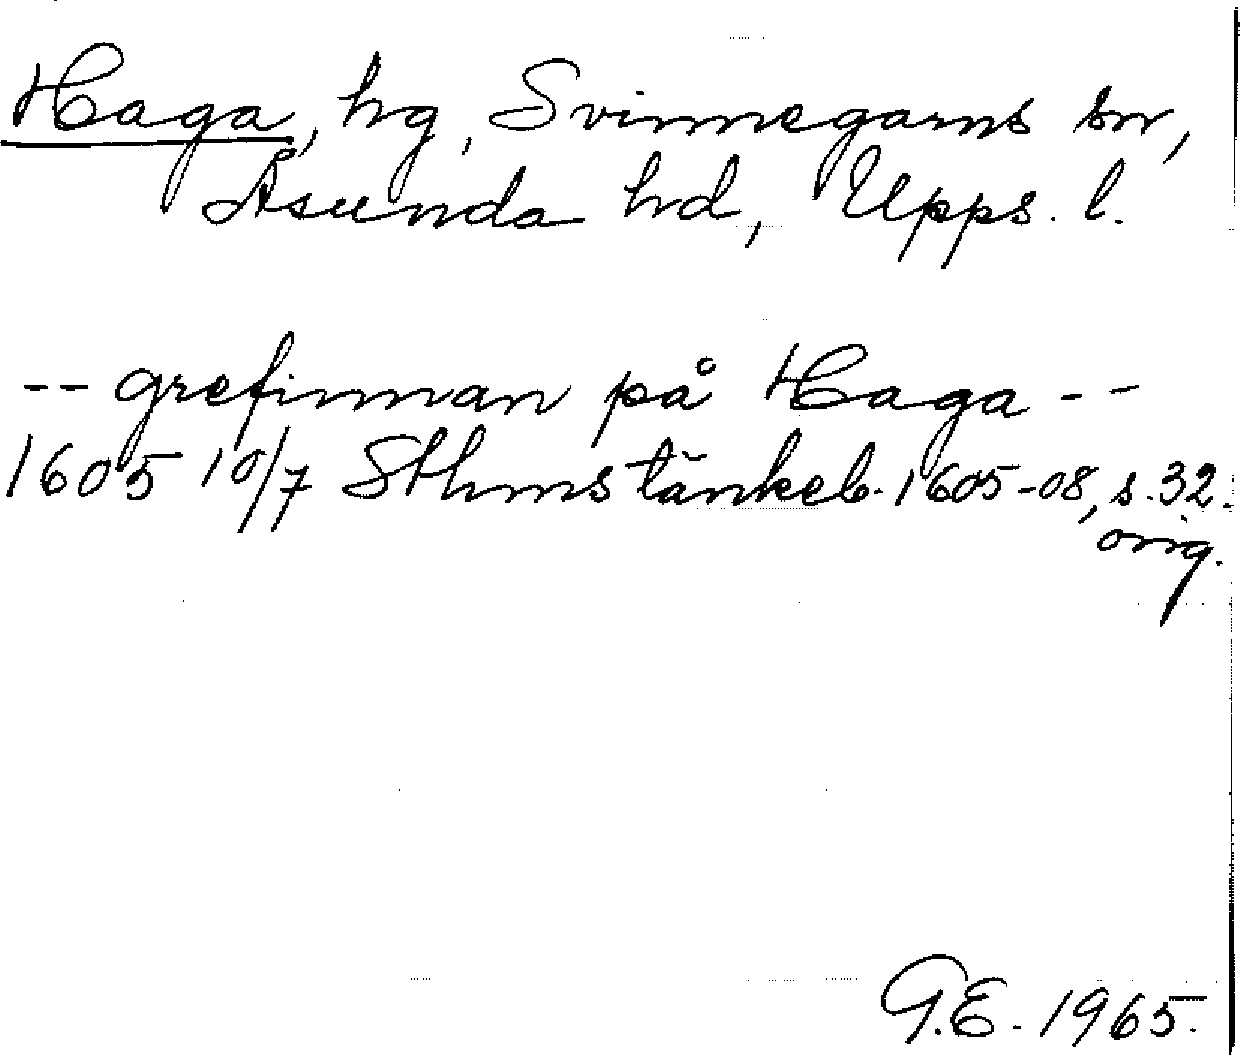 Haga, hg, Svinnegarns sn,
Åsunda hd, Upps. l.
-- grefinnan på Haga --
1605 10/7 Sthms tänkeb. 1605-08, s. 32.
orig.
G.E. 1965.